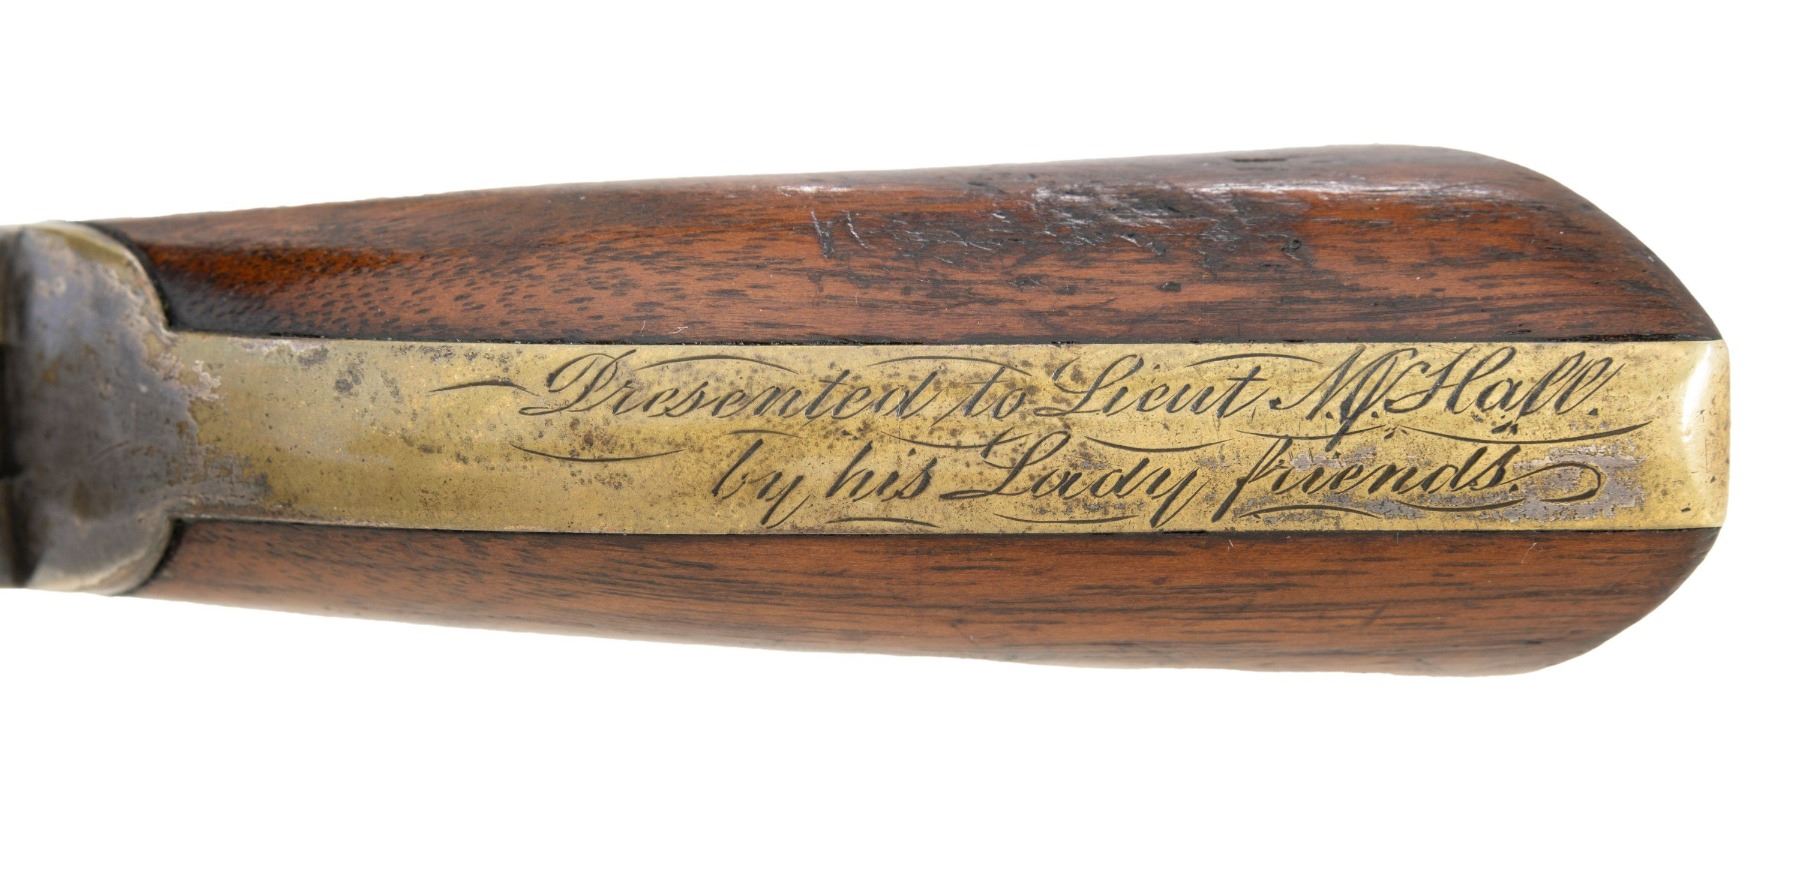 Presented to Lieut M. McHall.
by his Lady friends.